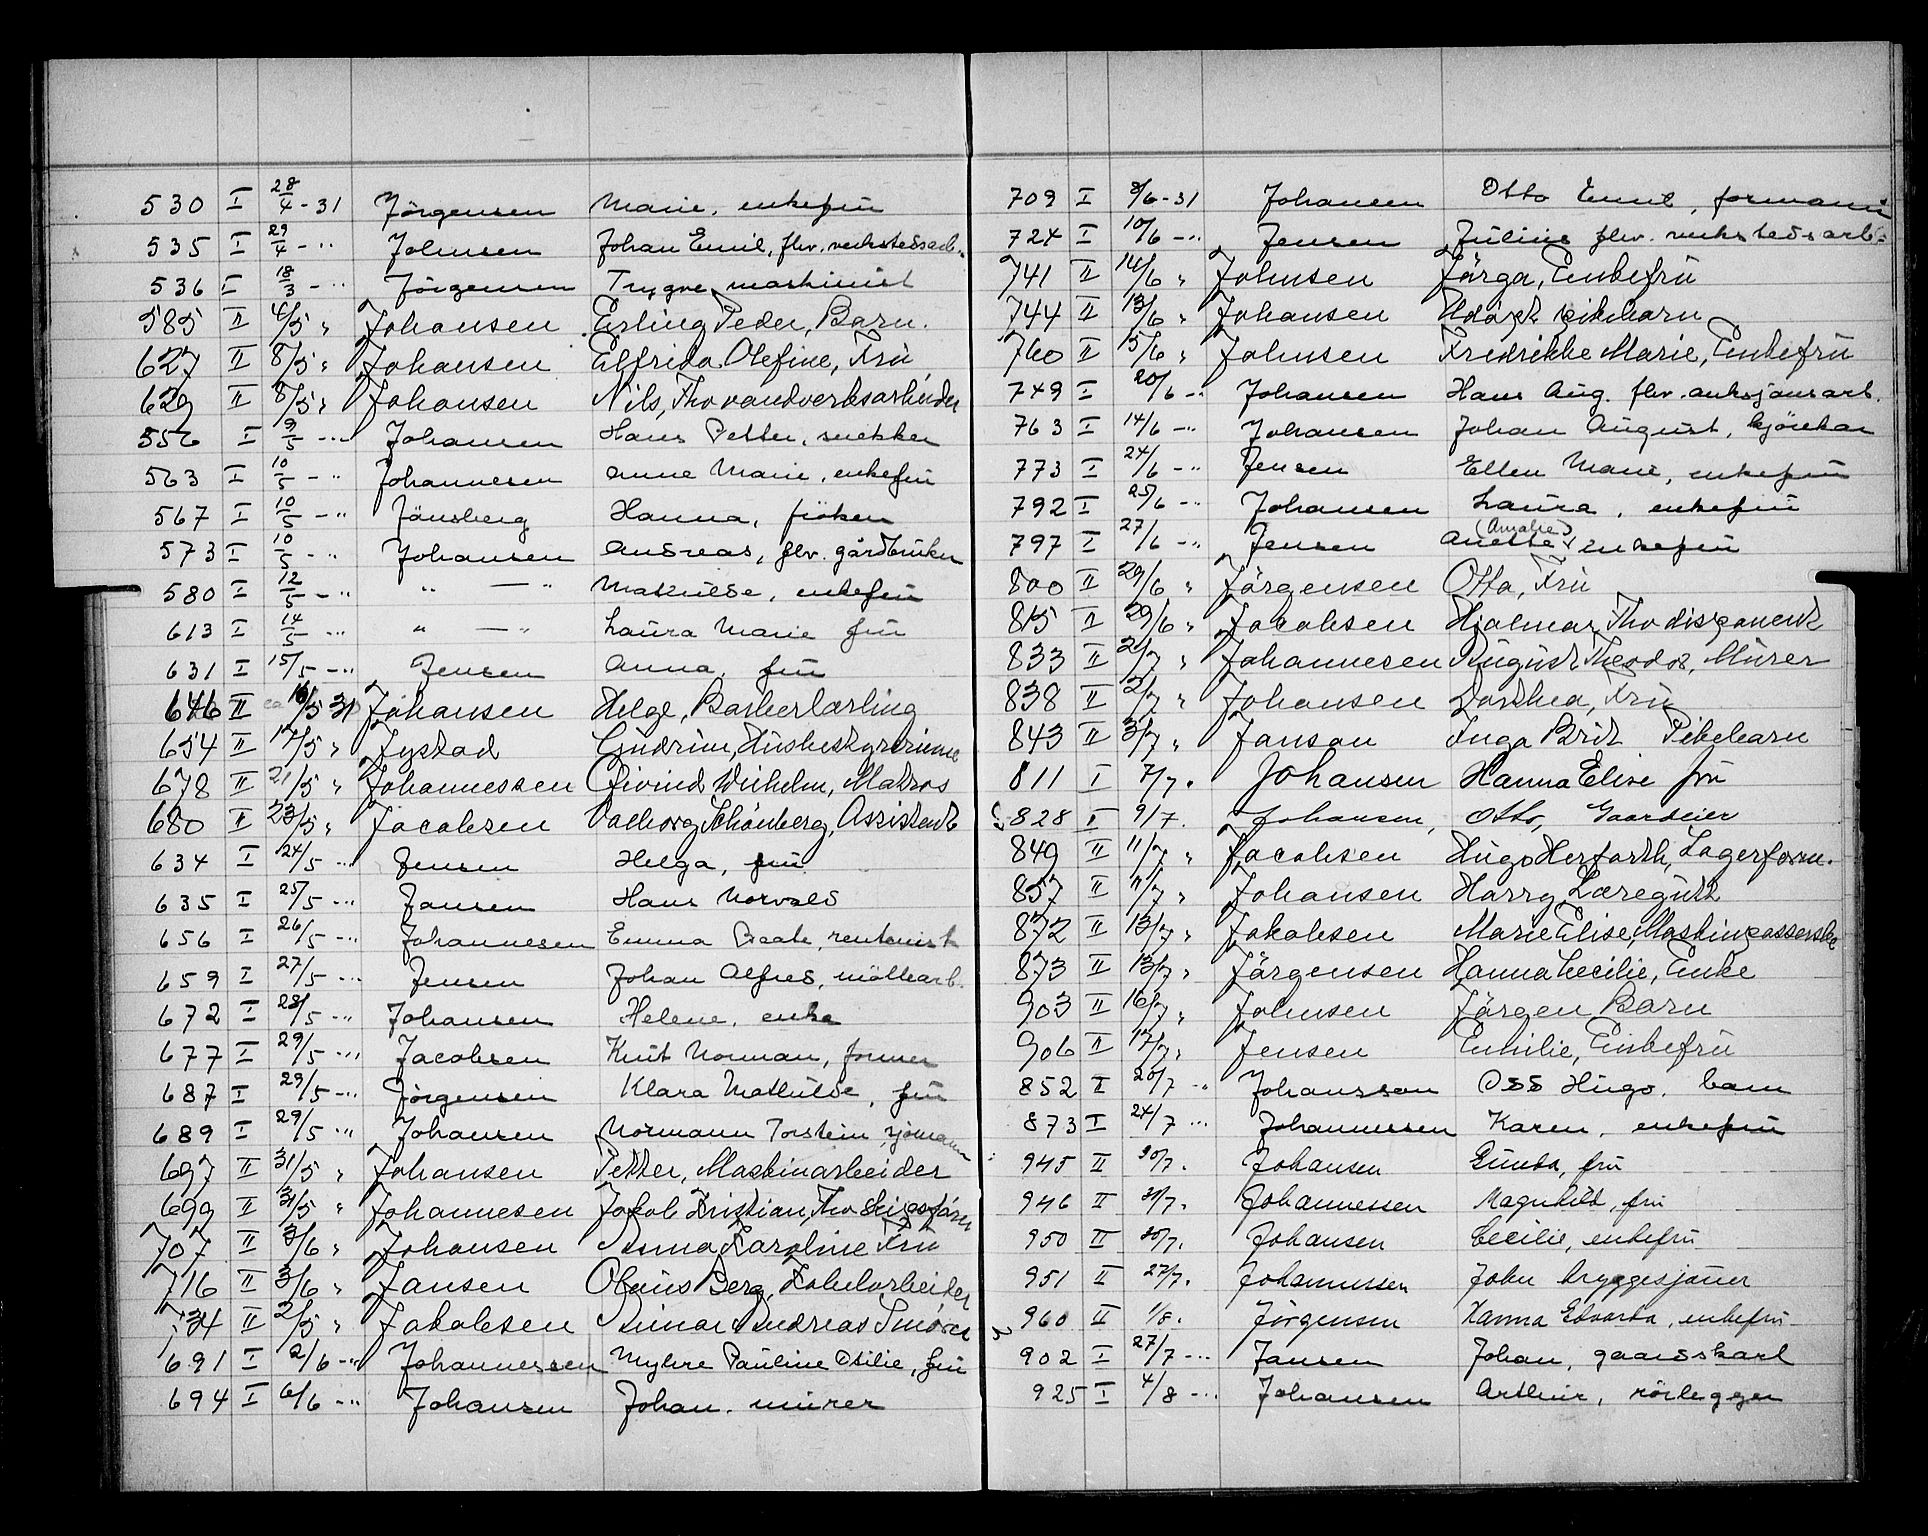 530 I 28/4 - 31 Jörgensen Marie, enkefru
535 I 29/4 - " Johnsen Johan Emil, fhv. verkstedsarb.
536 I 18/3 - " Jörgensen Trygve maskinist
585 II 4/5 " Johansen Erling Peder, Barn.
627 II 8/5 " Johansen Elfrida Olefine, Fru
629 II 8/5 " Johansen Nils, Fhv vandverksarbeider
556 I 9/5 - " Johansen Hans Petter, snekker
563 I 10/5 - " Johannesen Anne Marie, enkefru
567 I 10/5 - " Jänsberg Hanna, fröken
573 I 10/5 - " Johansen Andreas, fhv. gårdbruker
580 I 12/5 - " " — " Mathilde, enkefru
613 I 14/5 - " " — " Laura Marie fru
631 I 15/5 - " Jensen Anna, fru
646 II ca 16/5 31 Johansen Helge, Barberlærling
654 II 17/5 " Jystad Gudrun, Husbestyrerinne
678 II 21/5 " Johannessen Öivind Wilhelm, Matros
680 II 23/5 " Jacobsen Valborg Schönberg, Assistent
634 I 24/5 - " Jensen Helga, fru
635 I 25/5 - " Jansen Hans Norvald
656 I 26/5 - " Johannesen Emma Beate, rentenist
659 I 27/5 - " Jensen Johan Alfred, möllearb.
672 I 28/5 - " Johansen Helene, enke
677 I 29/5 - " Jacobsen Knut Norman, former
687 I 29/5 - " Jörgensen Klara Mathilde, fru
689 I 29/5 - " Johansen Normann Torstein, sjömann
697 II 31/5 " Johansen Petter, Maskinarbeider
699 II 31/5 " Johannesen Jakob Kristian, Fhv Skipsförer
707 II 3/6 " Johansen Anna Karoline Fru
716 II 3/6 " Jansen Olaus Berg, Fabrikarbeider
734 II 2/5 " Jakobsen Einar Andreas
691 I 2/6 - " Johannessen Myhre Pauline Otilie, fru
694 I 6/6 - " Johansen Johan, murer
709 I 8/6 - 31 Johansen Otto Emil, formann
724 I 10/6 - " Jensen Julius fhv. verkstedsarb.
741 II 14/6 " Johnsen Jörga, Enkefru
744 II 13/6 " Johansen Udöpt pikebarn
760 II 15/6 " Johnsen Fredrikke Marie, Enkefru
749 I 20/6 - " Johansen Hans Aug. fhv. auksjonsarb.
763 I 14/6 - " Johansen Johan August, kjörekar
773 I 24/6 - " Jensen Ellen Marie, enkefru
792 I 25/6 - " Johansen Laura, enkefru
797 I 27/6 - " Jensen Anette (Amalie), enkefru
800 II 29/6 " Jörgensen Otta, Fru
815 II 29/6 " Jacobsen Hjalmar, Fhv disponent
833 II 2/7 " Johannesen August Theodor, Murer
838 II 2/7 " Johansen Dorthea, Fru
843 II 3/7 " Janson Inga Brit Pikebarn
811 I 7/7. Johansen Hanna Elise fru
828 I 9/7. Johansen, Otto, Gaardeier
849 II 11/7 " Jacobsen Hugo Herfarth, Lagerform.
857 II 11/7 " Johansen Harry, Læregutt
872 II 13/7 " Jakobsen Marie Elise, Maskinpasserske
873 II 13/7 " Jörgensen Hanna Cecilie, Enke
903 II 16/7 " Johnsen Jörgen Barn
906 II 17/7 " Jensen Emilie, Enkefru
852 I 20/7 - " Johansson Odd Hugo, barn
873 I 24/7 - " Johannessen Karen, enkefru
945 II 30/7. Johansen Gunda, fru
946 II 31/7. Johannessen Magnhild, fru
950 II 30/7. Johansen Cecilie, enkefru
951 II 27/7. Johannessen John bryggesjauer
960 II 1/8. Jörgensen Hanna Edvarda, enkefru
902 I 27/7 - " Jansen Johan, gaardskarl
925 I 4/8 - " Johansen Arthur, rörlegger